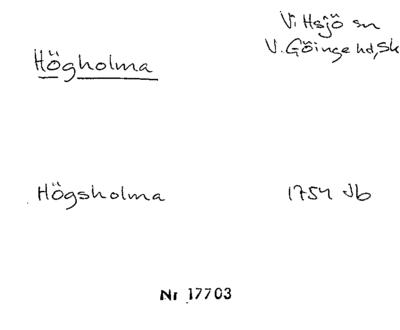 Vittsjö sn
V. Göinge hd, Sk
Högholma
Högsholma 1754 Jb
Nr 17703